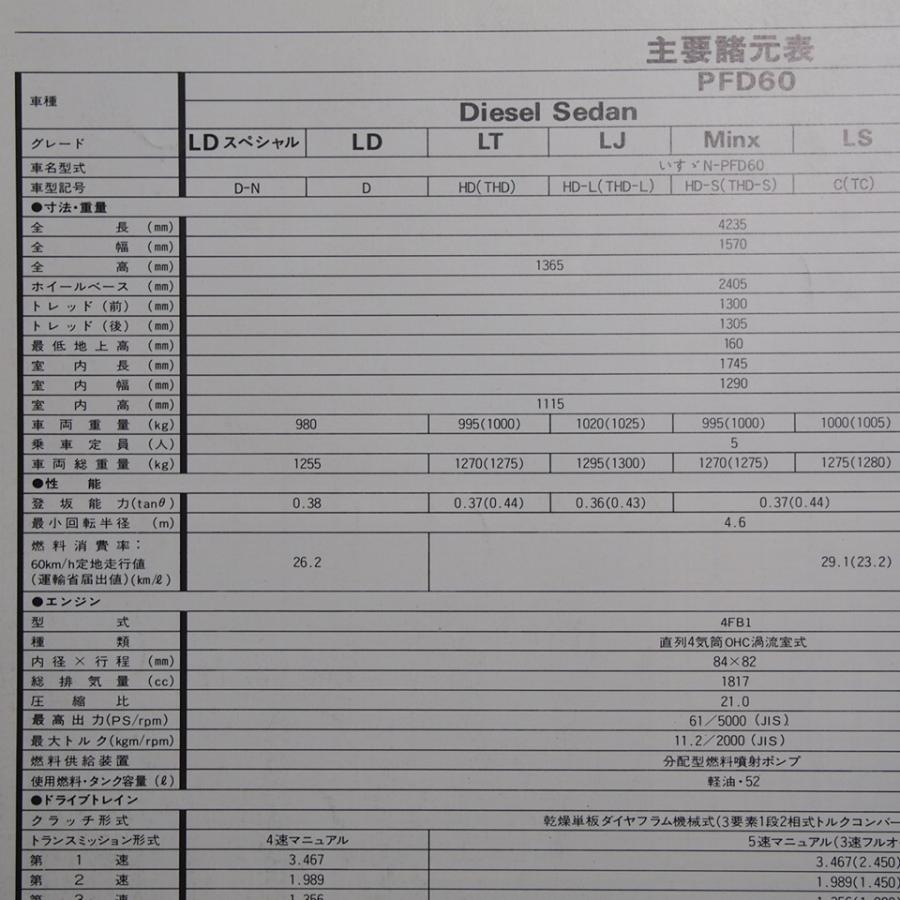 主要諸元表
PFD60
車種 Diesel Sedan
グレード LDスペシャル LD LT LJ Minx LS
車名型式 いすゞN-PFD60
車型記号 D-N D HD(THD) HD-L(THD-L) HD-S(THD-S) C(TC)
●寸法・重量
全長 (mm) 4235
全幅 (mm) 1570
全高 (mm) 1365
ホイールベース (mm) 2405
トレッド(前) (mm) 1300
トレッド(後) (mm) 1305
最低地上高 (mm) 160
室内長 (mm) 1745
室内幅 (mm) 1290
室内高 (mm) 1115
車両重量 (kg) 980 995(1000) 1020(1025) 995(1000) 1000(1005)
乗車定員 (人) 5
車両総重量 (kg) 1255 1270(1275) 1295(1300) 1270(1275) 1275(1280)
●性能
登坂能力(tanθ) 0.38 0.37(0.44) 0.36(0.43) 0.37(0.44)
最小回転半径 (m) 4.6
燃料消費率:
60km/h定地走行値 26.2 29.1(23.2)
(運輸省届出値)(km/ℓ)
●エンジン
型式 4FB1
種類 直列4気筒OHC渦流室式
内径×行程 (mm) 84×82
総排気量 (cc) 1817
圧縮比 21.0
最高出力(PS/rpm) 61/5000 (JIS)
最大トルク(kgm/rpm) 11.2/2000 (JIS)
燃料供給装置 分配型燃料噴射ポンプ
使用燃料・タンク容量 (ℓ) 軽油・52
●ドライブトレイン
クラッチ形式 乾燥単板ダイヤフラム機械式(3要素1段2相式トルクコンバー
トランスミッション形式 4速マニュアル 5速マニュアル(3速フルオ
第1速 3.467 3.467(2.450)
第2速 1.989 1.989(1.450)
第3速 1.356